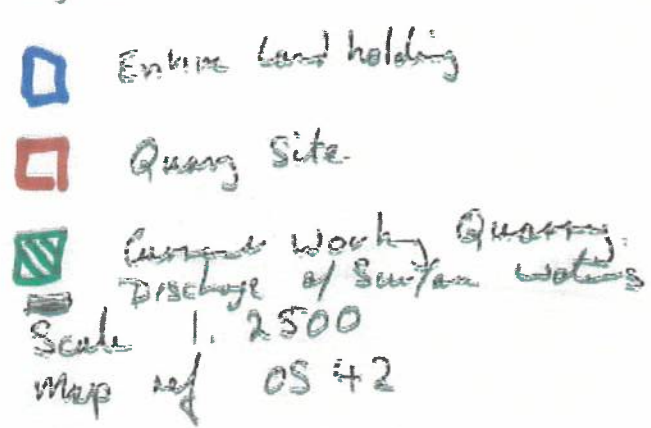 Entire Land holding
Quarry Site
Current Working Quarry.
Discharge of Surface Waters
Scale 1. 2500
Map ref OS 42